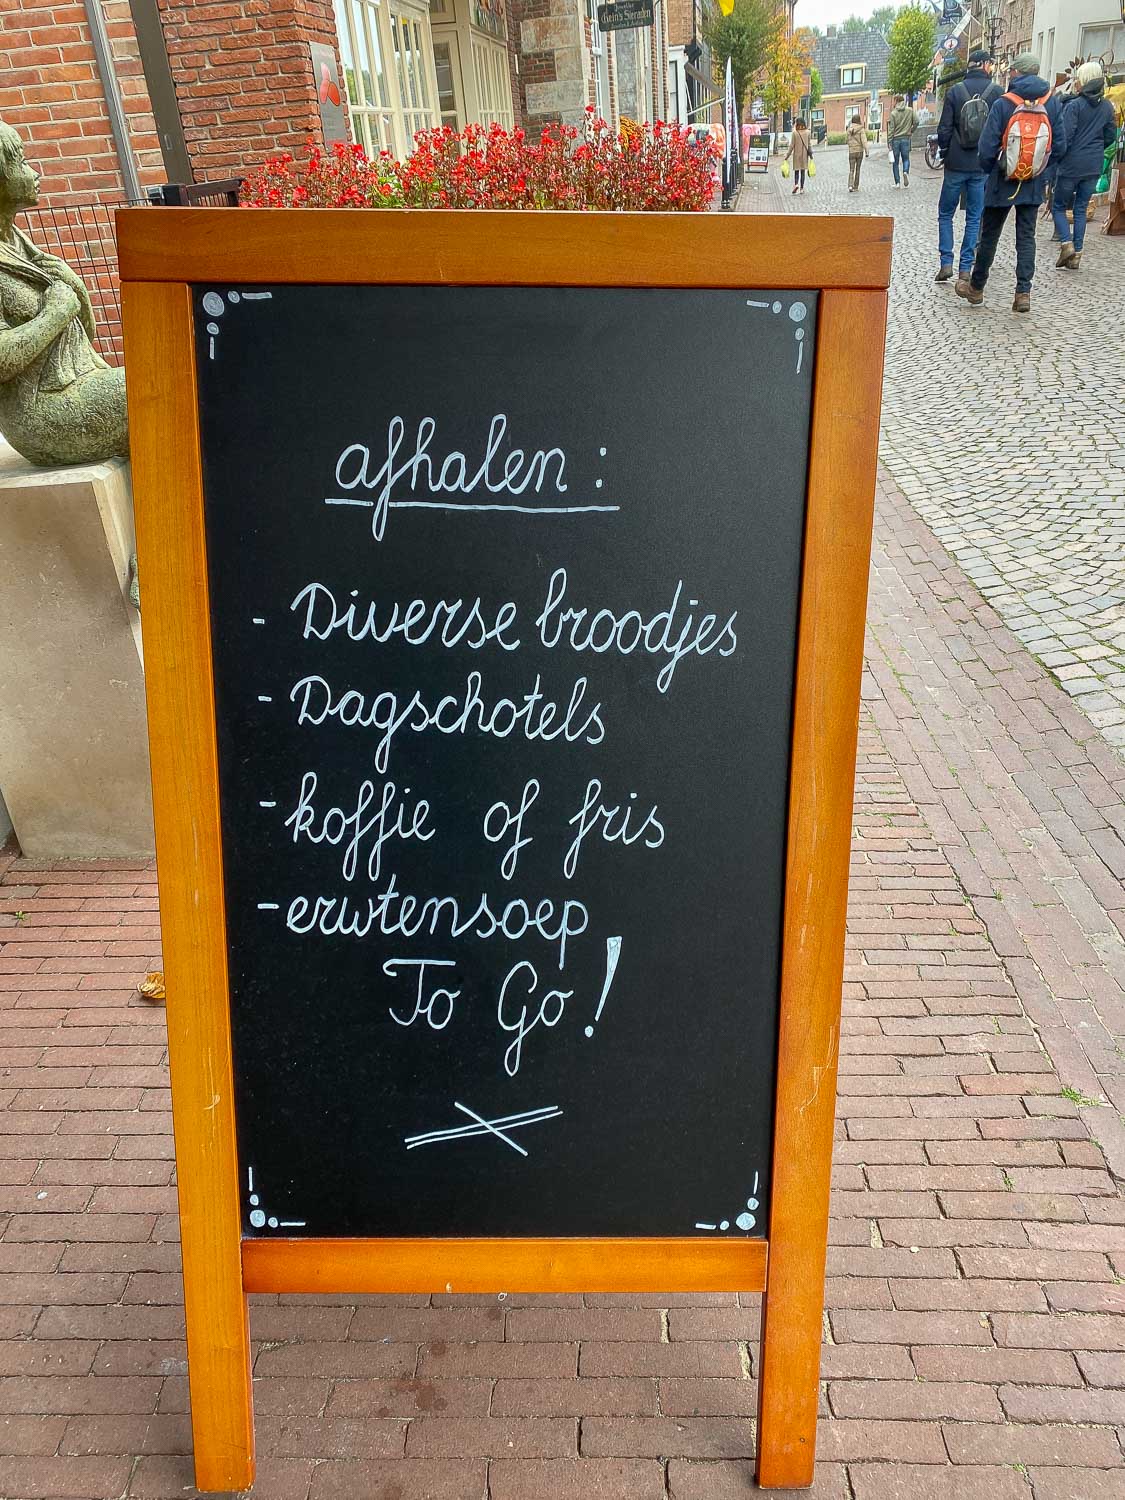 Gein's Sieraden
afhalen :
- Diverse broodjes
- Dagschotels
- koffie of fris
- erwtensoep
To Go!